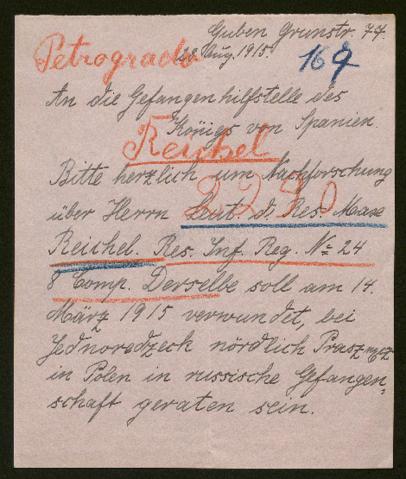 Guben Grunstr. 77.
Petrograd
28. Aug. 1915.
16 9
An die Gefangenhilfstelle des
Königs von Spanien
Reichel
Bitte herzlich um Nachforschung
über Herrn Leut. d. Res. Max
Reichel. Res. Inf. Reg. No 24
8 Comp. Derselbe soll am 14.
März 1915 verwundet, bei
Jednorodzeck nördlich Prasznysz
in Polen in russische Gefangen-
schaft geraten sein.